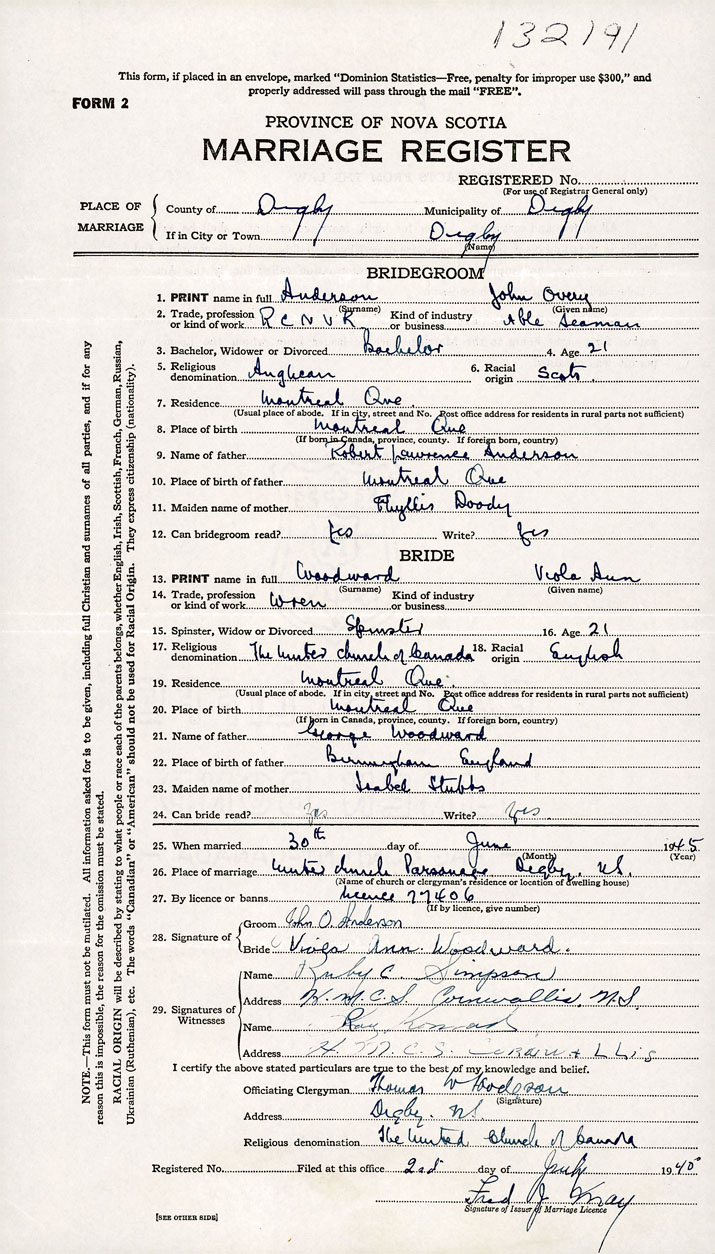 132191
This form, if placed in an envelope, marked "Dominion Statistics—Free, penalty for improper use $300," and
properly addressed will pass through the mail "FREE".
FORM 2
PROVINCE OF NOVA SCOTIA
MARRIAGE REGISTER
REGISTERED No.
(For use of Registrar General only)
PLACE OF MARRIAGE
County of Digby Municipality of Digby
If in City or Town Digby
(Name)
BRIDEGROOM
1. PRINT name in full Anderson John Overy
(Surname) (Given name)
2. Trade, profession or kind of work R C N V R Kind of industry or business Able Seaman
3. Bachelor, Widower or Divorced Bachelor 4. Age 21
5. Religious denomination Anglican 6. Racial origin Scots
7. Residence Montreal Que
(Usual place of abode. If in city, street and No. Post office address for residents in rural parts not sufficient)
8. Place of birth Montreal Que
(If born in Canada, province, county. If foreign born, country)
9. Name of father Robert Lawrence Anderson
10. Place of birth of father Montreal Que
11. Maiden name of mother Phyllis Doody
12. Can bridegroom read? Yes Write? Yes
BRIDE
13. PRINT name in full Woodward Viola Ann
(Surname) (Given name)
14. Trade, profession or kind of work Wren Kind of industry or business
15. Spinster, Widow or Divorced Spinster 16. Age 21
17. Religious denomination The United Church of Canada 18. Racial origin English
19. Residence Montreal Que.
(Usual place of abode. If in city, street and No. Post office address for residents in rural parts not sufficient)
20. Place of birth Montreal Que
(If born in Canada, province, county. If foreign born, country)
21. Name of father George Woodward
22. Place of birth of father Birmingham England
23. Maiden name of mother Isabel Stubbs
24. Can bride read? Yes Write? Yes
25. When married 30th day of June 1945
(Month) (Year)
26. Place of marriage United Church Parsonage Digby, N.S.
(Name of church or clergyman's residence or location of dwelling house)
27. By licence or banns licence 77406
(If by licence, give number)
28. Signature of
Groom John O. Anderson
Bride Viola Ann Woodward.
29. Signatures of Witnesses
Name Ruby C. Simpson
Address H.M.C.S. Cornwallis, N.S.
Name Ray
Address H.M.C.S. Cornwallis
I certify the above stated particulars are true to the best of my knowledge and belief.
Officiating Clergyman Thomas W Hodgson
(Signature)
Address Digby. N.S.
Religious denomination The United Church of Canada
Registered No. Filed at this office 2nd day of July 1945
Fred J May
Signature of Issuer of Marriage Licence
[SEE OTHER SIDE]
NOTE.—This form must not be mutilated. All information asked for is to be given, including full Christian and surnames of all parties, and if for any
reason this is impossible, the reason for the omission must be stated.
RACIAL ORIGIN will be described by stating to what people or race each of the parents belongs, whether English, Irish, Scottish, French, German, Russian,
Ukrainian (Ruthenian), etc. The words "Canadian" or "American" should not be used for Racial Origin. They express citizenship (nationality).